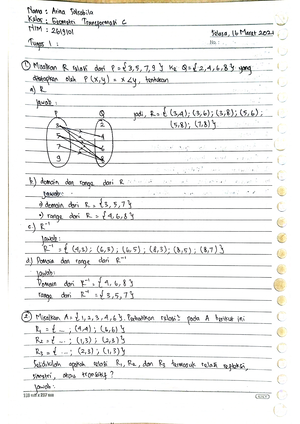 Nama : Arina Salsabila
Kelas : Geometri Transformasi C
NIM : 2619101
Selasa, 16 Maret 202
Tugas 1 :
No :
① Misalkan R relasi dari P = {3, 5, 7, 9} ke Q = {2, 4, 6, 8} yang
disajikan oleh P (x, y) = x < y, tentukan
a) R
Jawab :
P Q
jadi, R = {(3,4); (3,6); (3,8); (5,6);
(5,8); (7,8)}
3 2
5 4
7 6
9 8
b) domain dan range dari R
Jawab:
domain dari R = {3, 5, 7}
range dari R = {4, 6, 8}
c) R⁻¹
Jawab:
R⁻¹ = {(4,3); (6,3); (6,5); (8,3); (8,5); (8,7)}
d) Domain dan range dari R⁻¹
Jawab:
Domain dari R⁻¹ = {4, 6, 8}
range dari R⁻¹ = {3, 5, 7}
② Misalkan A = {1, 2, 3, 4, 6}. Perhatikan relasi² pada A berikut ini
R₁ = { ... ; (4,4); (6,6)}
R₂ = { ... ; (1,3); (2,3)}
R₃ = { ... ; (2,3); (1,3)}
Selidikilah apakah relasi R₁, R₂, dan R₃ termasuk relasi refleksi,
simetri, atau transitif ?
Jawab: